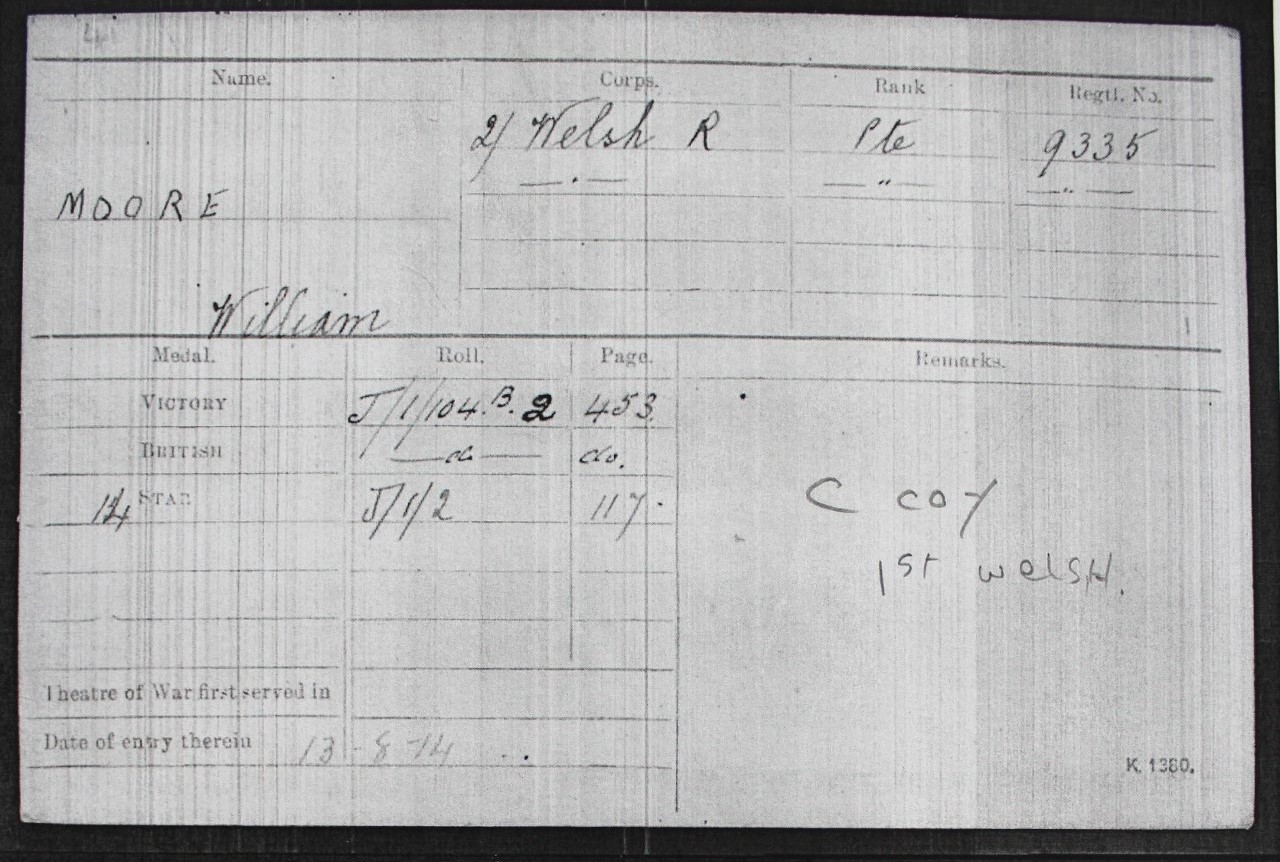 Name. Corps. Rank Regtl. No.
2/ Welsh R Pte 9335
— " — — " — — " —
MOORE
William
Medal. Roll. Page. Remarks.
VICTORY J/1/104.B.2 453.
BRITISH — do — do.
14 STAR J/1/2 117.
C coy
1st welsH.
Theatre of War first served in
Date of entry therein 13-8-14
K. 1380.